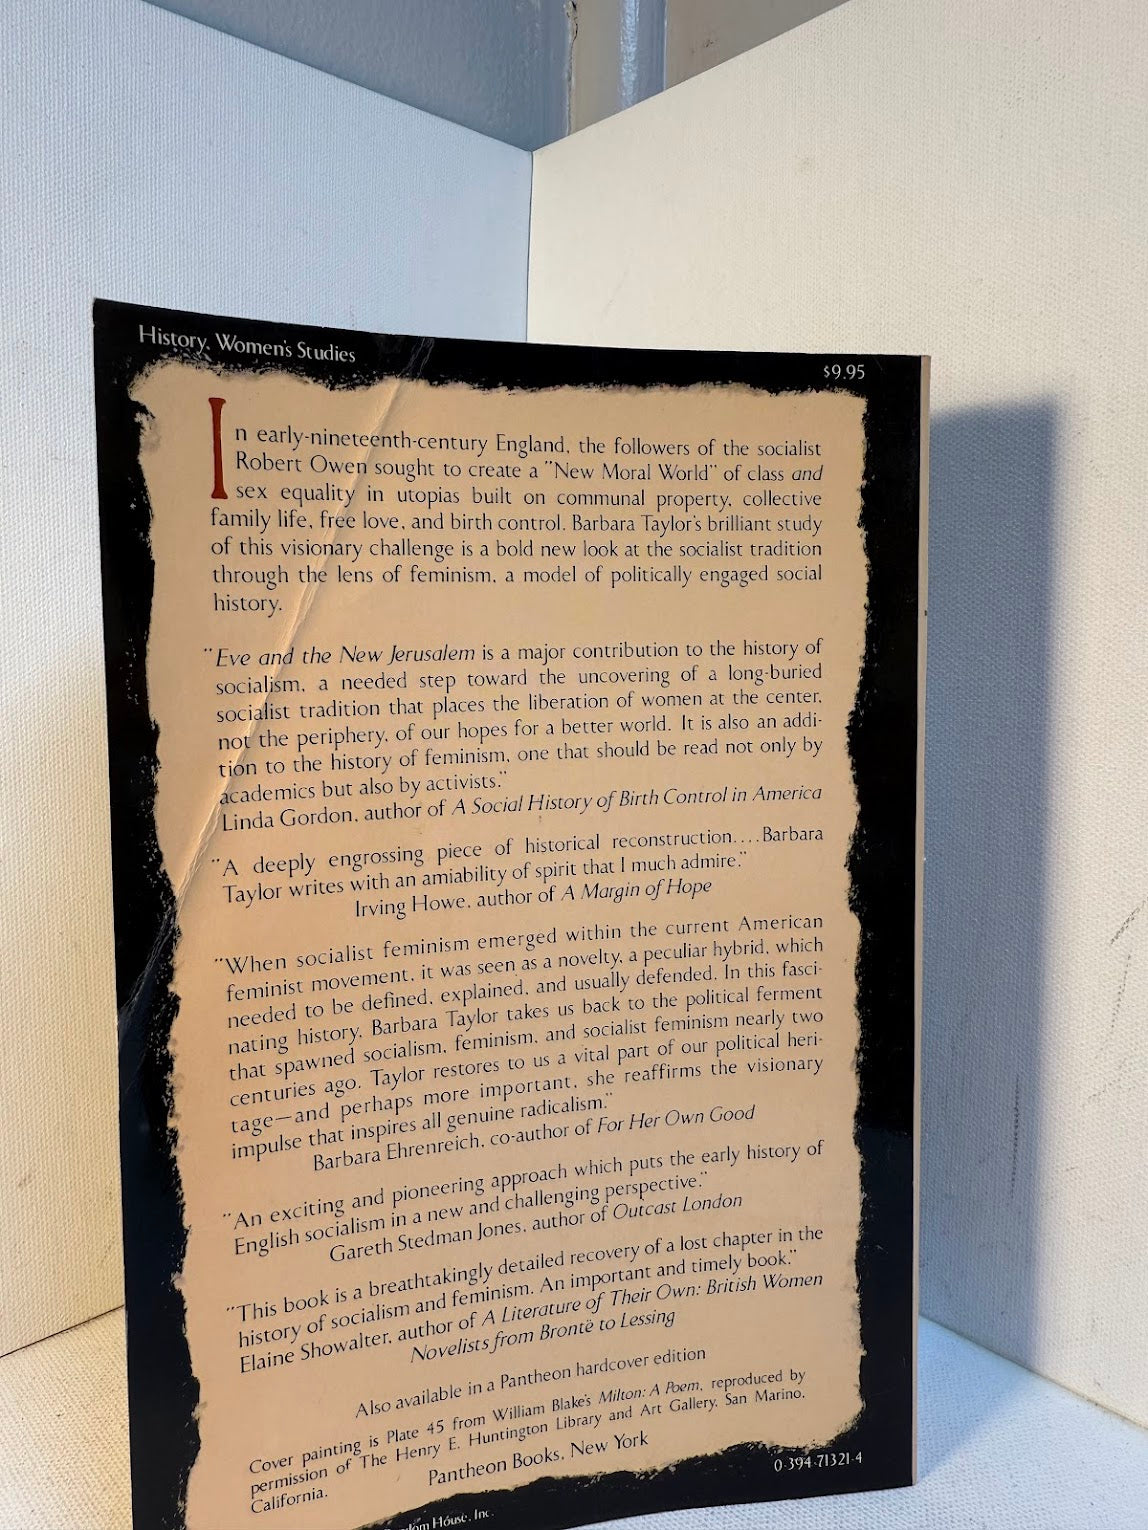 History, Women's Studies
$9.95
In early-nineteenth-century England, the followers of the socialist
Robert Owen sought to create a "New Moral World" of class and
sex equality in utopias built on communal property, collective
family life, free love, and birth control. Barbara Taylor's brilliant study
of this visionary challenge is a bold new look at the socialist tradition
through the lens of feminism, a model of politically engaged social
history.
"Eve and the New Jerusalem is a major contribution to the history of
socialism, a needed step toward the uncovering of a long-buried
socialist tradition that places the liberation of women at the center,
not the periphery, of our hopes for a better world. It is also an addi-
tion to the history of feminism, one that should be read not only by
academics but also by activists."
Linda Gordon, author of A Social History of Birth Control in America
"A deeply engrossing piece of historical reconstruction....Barbara
Taylor writes with an amiability of spirit that I much admire."
Irving Howe, author of A Margin of Hope
"When socialist feminism emerged within the current American
feminist movement, it was seen as a novelty, a peculiar hybrid, which
needed to be defined, explained, and usually defended. In this fasci-
nating history, Barbara Taylor takes us back to the political ferment
that spawned socialism, feminism, and socialist feminism nearly two
centuries ago. Taylor restores to us a vital part of our political heri-
tage—and perhaps more important, she reaffirms the visionary
impulse that inspires all genuine radicalism."
Barbara Ehrenreich, co-author of For Her Own Good
"An exciting and pioneering approach which puts the early history of
English socialism in a new and challenging perspective."
Gareth Stedman Jones, author of Outcast London
"This book is a breathtakingly detailed recovery of a lost chapter in the
history of socialism and feminism. An important and timely book."
Elaine Showalter, author of A Literature of Their Own: British Women
Novelists from Brontë to Lessing
Also available in a Pantheon hardcover edition
Cover painting is Plate 45 from William Blake's Milton: A Poem, reproduced by
permission of The Henry E. Huntington Library and Art Gallery, San Marino,
California.
Pantheon Books, New York
0-394-71321-4
House, Inc.